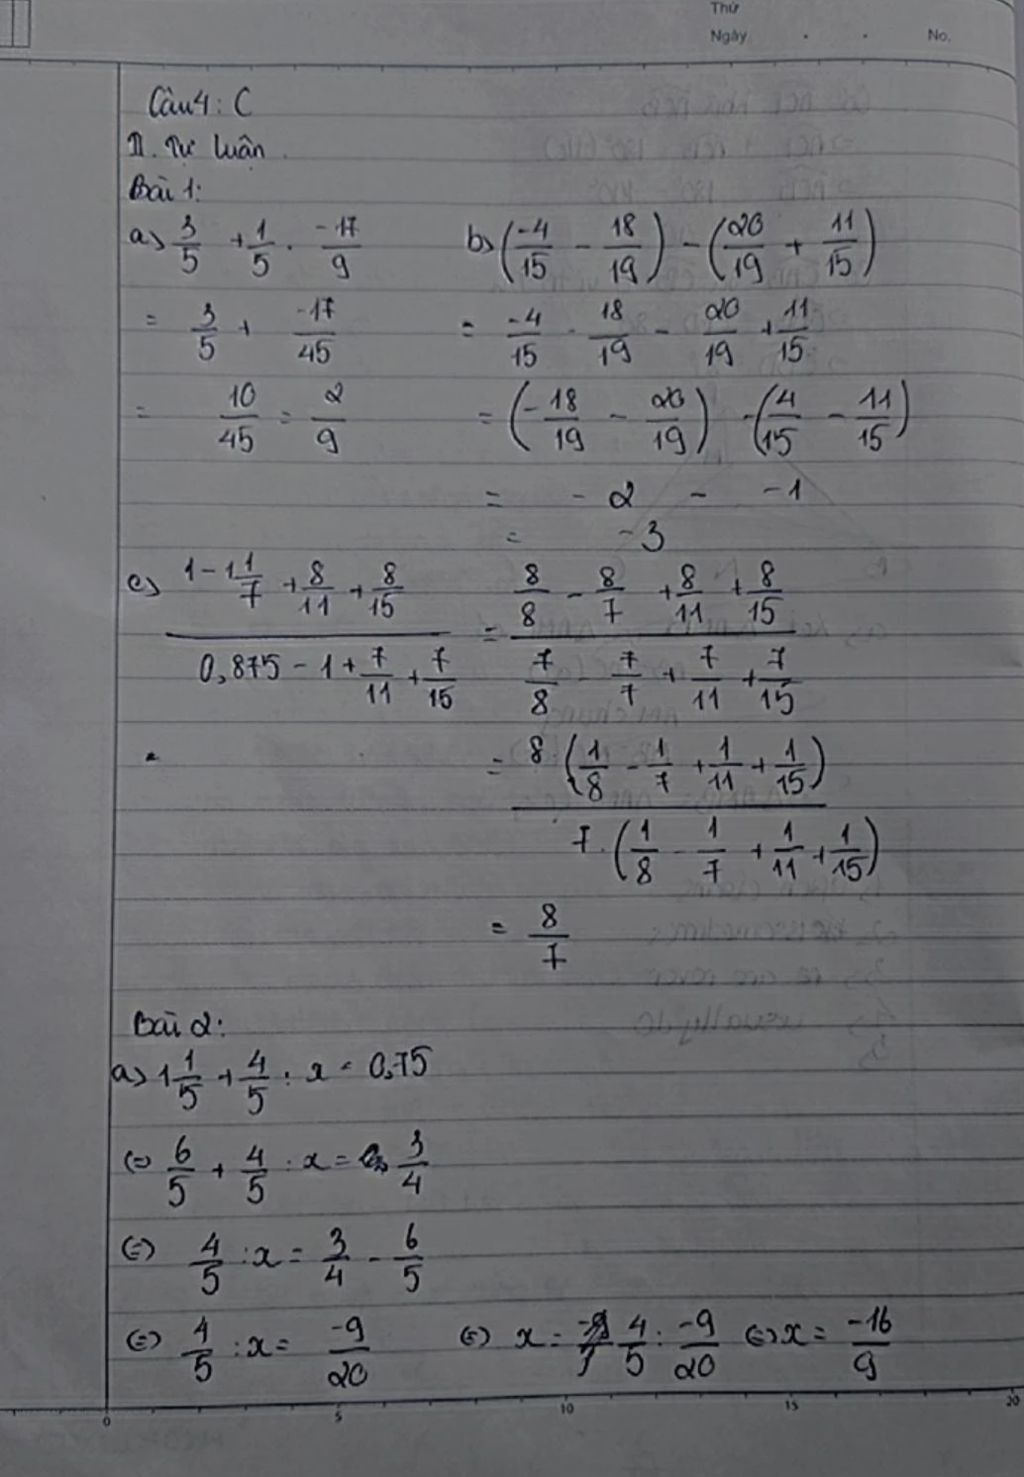 Thứ
Ngày . . No.
Câu 4: C
II. Tự luận.
Bài 1:
a) 3/5 + 1/5 . -17/9
= 3/5 + -17/45
= 10/45 = 2/9
b) (-4/15 - 18/19) - (20/19 + 11/15)
= -4/15 - 18/19 - 20/19 + 11/15
= (-18/19 - 20/19) - (4/15 - 11/15)
= - 2 - -1
= -3
c) (1 - 1 1/7 + 8/11 + 8/15) / (0,875 - 1 + 7/11 + 7/15) = (8/8 - 8/7 + 8/11 + 8/15) / (7/8 7/7 + 7/11 + 7/15)
= 8 (1/8 - 1/7 + 1/11 + 1/15) / 7 . (1/8 - 1/7 + 1/11 + 1/15)
= 8/7
Bài 2:
a) 1 1/5 + 4/5 : x = 0,75
(=) 6/5 + 4/5 : x = 3/4
(=) 4/5 : x = 3/4 - 6/5
(=) 4/5 : x = -9/20 (=) x = 4/5 : -9/20 (=) x = -16/9
0 5 10 15 20